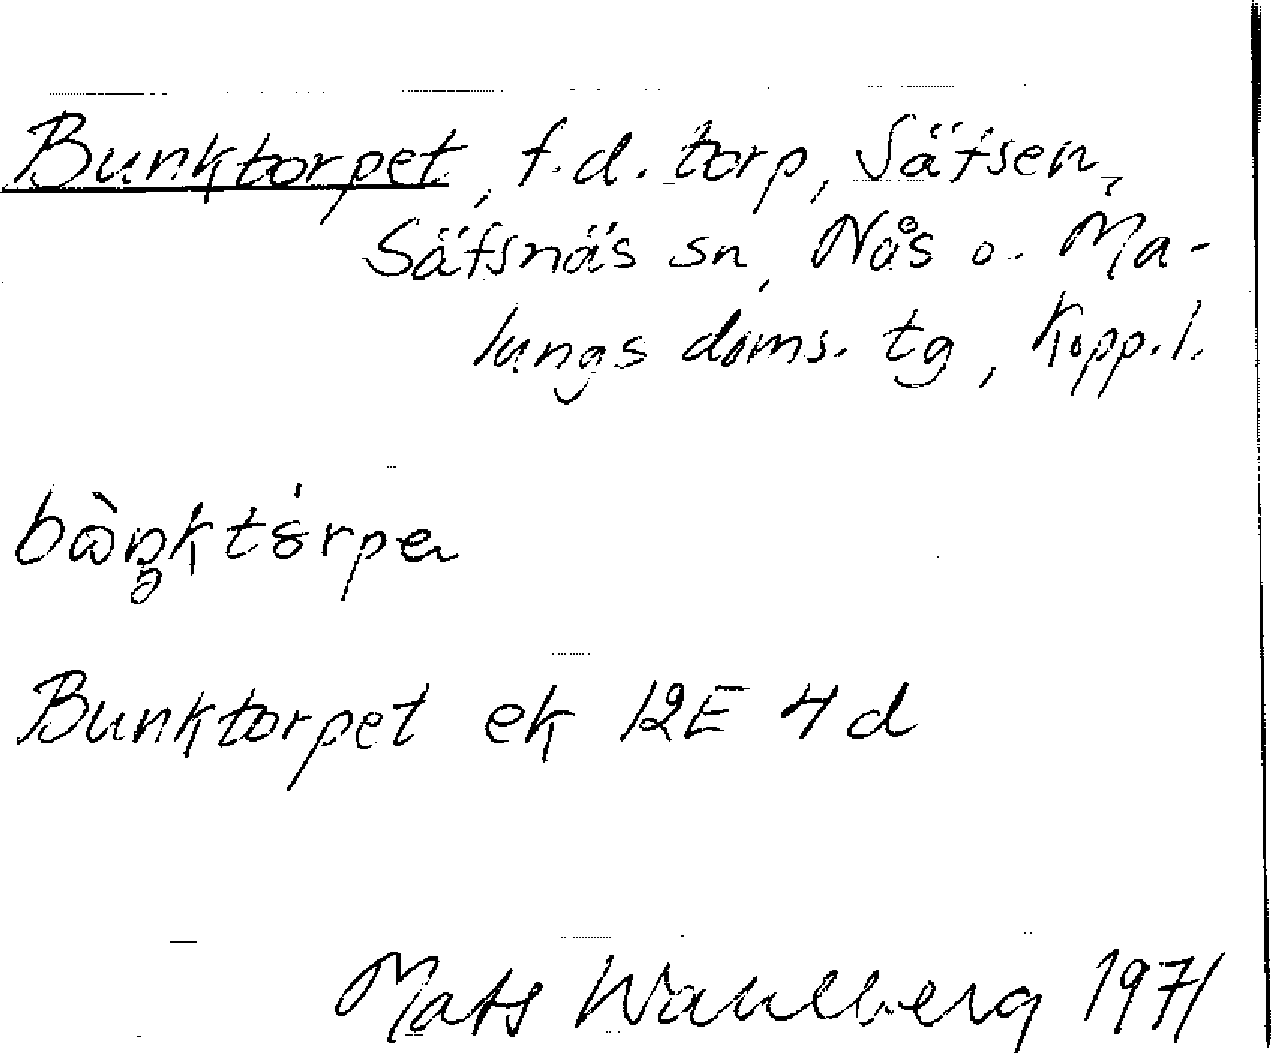 Bunktorpet, f.d. torp, Säfsen,
Säfsnäs sn, Nås o. Ma-
lungs doms. tg, Kopp.l.
Bunktorpet ek 12E 4d
Mats Wahlberg 1971